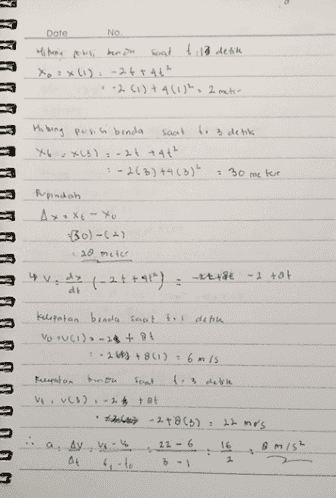 Date No.
Hitung posisi benda saat t = 1 detik
X₀ = x(1) = -2t + 4t²
= -2(1) + 4(1)² = 2 meter
Hitung posisi benda saat t = 3 detik
X₆ = x(3) = -2t + 4t²
= -2(3) + 4(3)² = 30 meter
Perpindah
Δx = x₆ - x₀
(30) - (2)
= 28 meter
↳ V = dx/dt (-2t + 4t²) = -2 + 8t
Kecepatan benda saat t = 1 detik
V₀ = V(1) = -2 + 8t
= -2 + 8(1) = 6 m/s
Kecepatan benda saat t = 3 detik
Vt = V(3) = -2 + 8t
-2 + 8(3) = 22 m/s
∴ a = ΔV/Δt = Vt - V₀/t₁ - t₀ = 22 - 6/3 - 1 = 16/2 = 8 m/s²